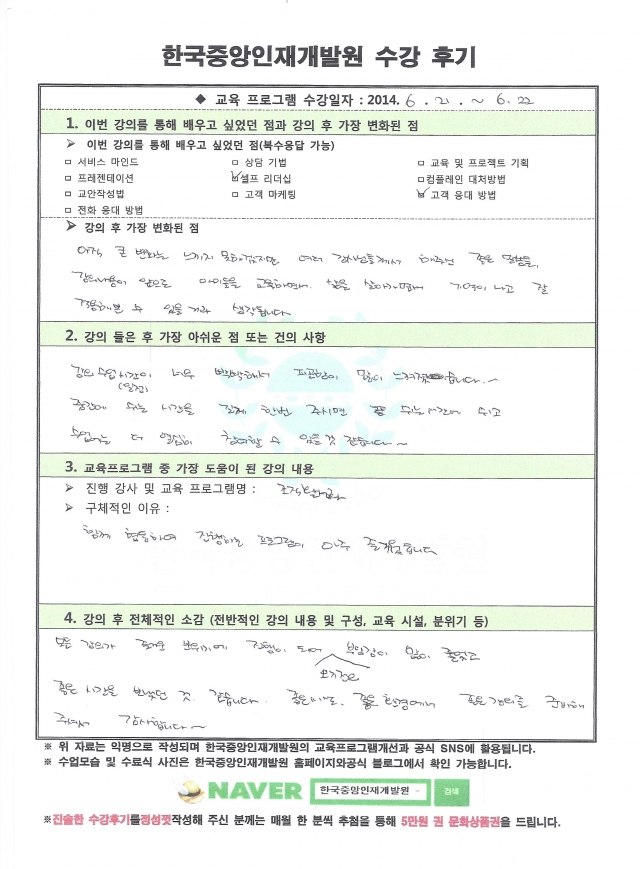 한국중앙인재개발원 수강 후기
◆ 교육 프로그램 수강일자 : 2014. 6 . 21 . ~ 6. 22
1. 이번 강의를 통해 배우고 싶었던 점과 강의 후 가장 변화된 점
➢ 이번 강의를 통해 배우고 싶었던 점(복수응답 가능)
□ 서비스 마인드 □ 상담 기법 □ 교육 및 프로젝트 기획
□ 프레젠테이션 ☑ 셀프 리더십 □ 컴플레인 대처방법
□ 교안작성법 □ 고객 마케팅 ☑ 고객 응대 방법
□ 전화 응대 방법
➢ 강의 후 가장 변화된 점
아직 큰 변화는 느끼지 못하겠지만 여러 강사님들께서 해주신 좋은 말씀들,
강의내용이 앞으로 아이들을 교육하면서, 삶을 살아가면서 기억이 나고 잘
적용해볼 수 있을거라 생각됩니다
2. 강의 들은 후 가장 아쉬운 점 또는 건의 사항
강의 수업시간이 너무 빡빡해서 피곤함이 많이 느껴졌습니다.~
(일정)
중간에 쉬는 시간을 길게 한번 주시면 쉬는시간에 쉬고
수업에는 더 열심히 참여할 수 있을것 같습니다~
3. 교육프로그램 중 가장 도움이 된 강의 내용
➢ 진행 강사 및 교육 프로그램명 :
➢ 구체적인 이유 :
함께 협동하여 진행하는 프로그램이 아주 즐거웠습니다
4. 강의 후 전체적인 소감 (전반적인 강의 내용 및 구성, 교육 시설, 분위기 등)
모든 강의가 즐거운 분위기에 진행이 되어 부담감이 많이 줄었고
좋은 시간을 보냈던 것 같습니다. 좋은시설, 좋은 환경에서 좋은 강의를 준비해
주셔서 감사합니다~
※ 위 자료는 익명으로 작성되며 한국중앙인재개발원의 교육프로그램개선과 공식 SNS에 활용됩니다.
※ 수업모습 및 수료식 사진은 한국중앙인재개발원 홈페이지와공식 블로그에서 확인 가능합니다.
NAVER 한국중앙인재개발원 검색
※진솔한 수강후기를정성껏작성해 주신 분께는 매월 한 분씩 추첨을 통해 5만원 권 문화상품권을 드립니다.